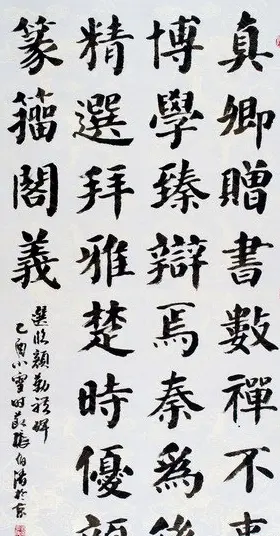 真卿贈書數禪不
博學臻辯焉秦為後
精選拜雅楚時優
篆籀閣義
選臨顏勤禮碑
乙酉小雪時